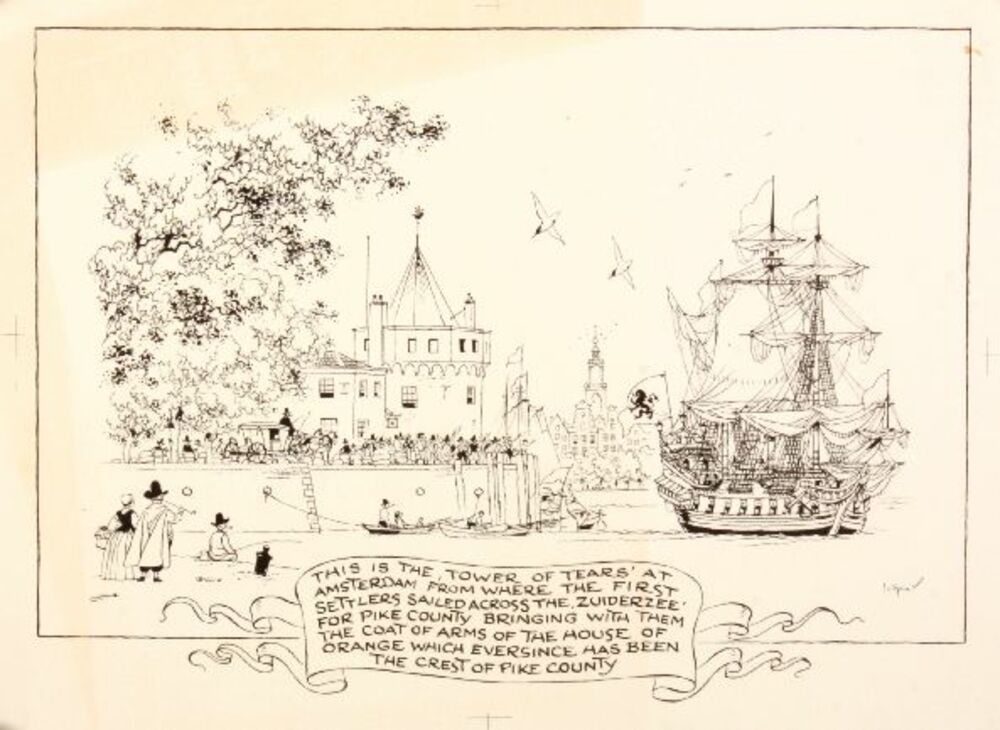 THIS IS THE ,TOWER OF TEARS' AT
AMSTERDAM FROM WHERE THE FIRST
SETTLERS SAILED ACROSS THE ,ZUIDERZEE'
FOR PIKE COUNTY BRINGING WITH THEM
THE COAT OF ARMS OF THE HOUSE OF
ORANGE WHICH EVERSINCE HAS BEEN
THE CREST OF PIKE COUNTY